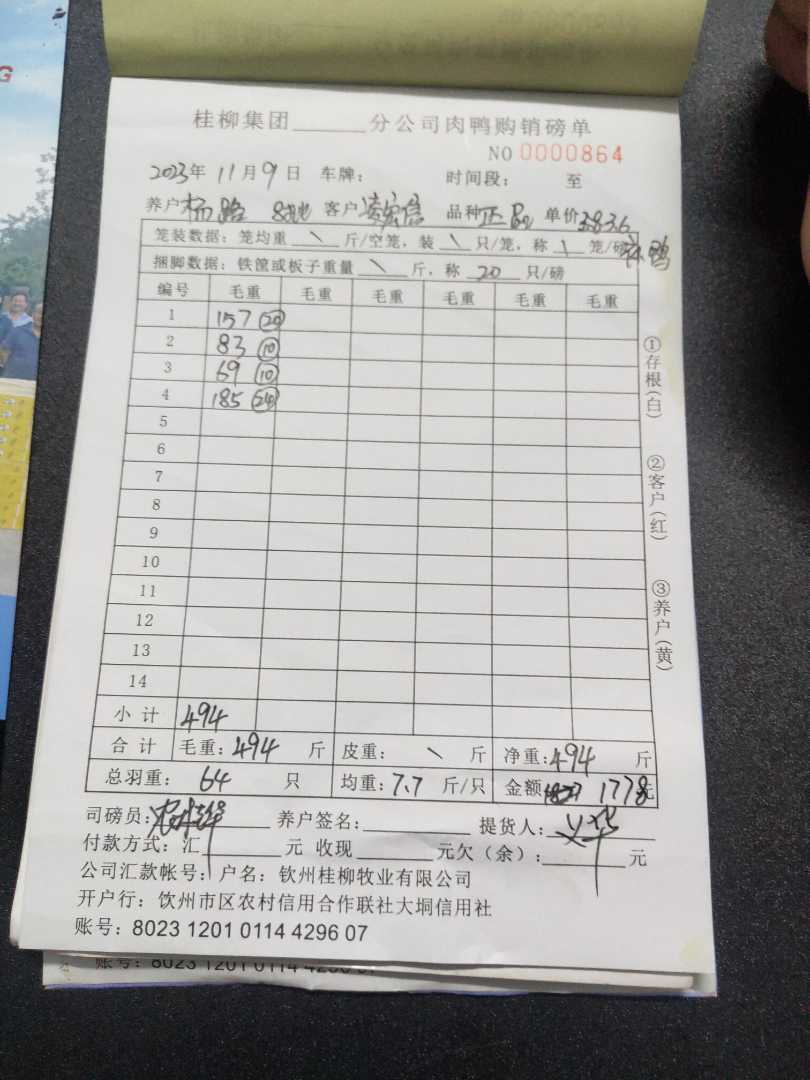 桂柳集团______分公司肉鸭购销磅单
NO 0000864
2023年 11月 9日 车牌： 时间段： 至
养户 杨路 客户 凌宏信 品种 正 单价 3.6
笼装数据：笼均重 \ 斤/空笼，装 \ 只/笼，称 \ 笼/磅
捆脚数据：铁筐或板子重量 \ 斤，称 20 只/磅
编号 毛重 毛重 毛重 毛重 毛重 毛重
1 157 20
2 83 10
3 69 10
4 185 24
5
6
7
8
9
10
11
12
13
14
小计 494
合计 毛重：494 斤 皮重： \ 斤 净重：494 斤
总羽重： 64 只 均重：7.7 斤/只 金额 1778元
①存根(白)
②客户(红)
③养户(黄)
司磅员： 养户签名： 提货人：
付款方式：汇 元 收现 元欠（余）： 元
公司汇款帐号：户名：钦州桂柳牧业有限公司
开户行：饮州市区农村信用合作联社大垌信用社
账号：8023 1201 0114 4296 07
账号：8023 1201 0114 4296 07